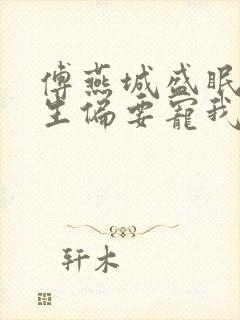 傅燕城盛眠
生偏要宠我
轩木